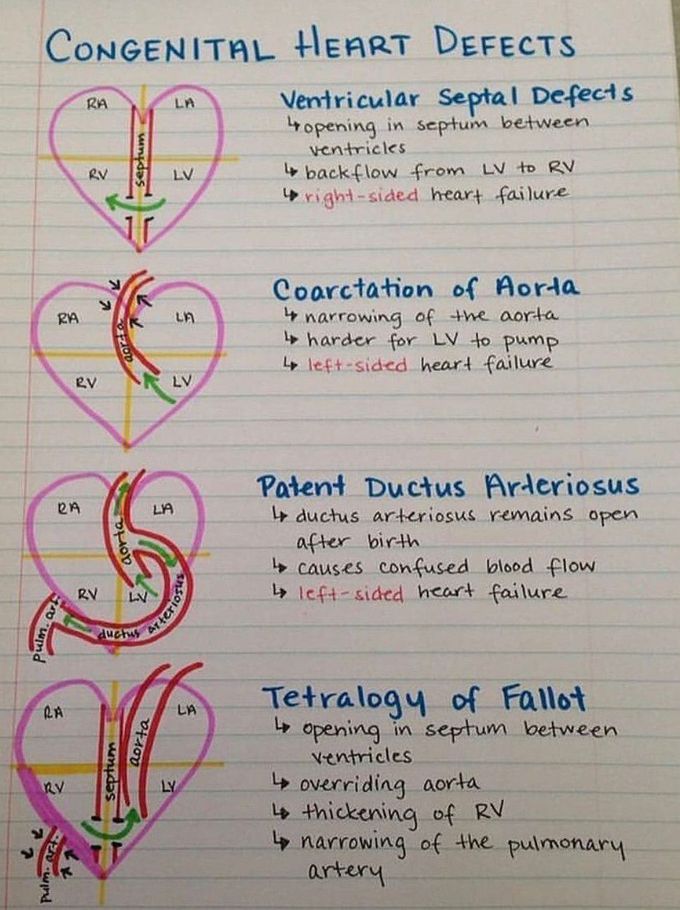 CONGENITAL HEART DEFECTS
RA
LA
septum
RV
LV
Ventricular Septal Defects
↳ opening in septum between
ventricles
↳ backflow from LV to RV
↳ right-sided heart failure
RA
LA
aorta
RV
LV
Coarctation of Aorta
↳ narrowing of the aorta
↳ harder for LV to pump
↳ left-sided heart failure
RA
LA
aorta
RV
LV
ductus arteriosus
Pulm. art.
Patent Ductus Arteriosus
↳ ductus arteriosus remains open
after birth
↳ causes confused blood flow
↳ left-sided heart failure
RA
LA
septum
aorta
RV
LV
Pulm. art.
Tetralogy of Fallot
↳ opening in septum between
ventricles
↳ overriding aorta
↳ thickening of RV
↳ narrowing of the pulmonary
artery